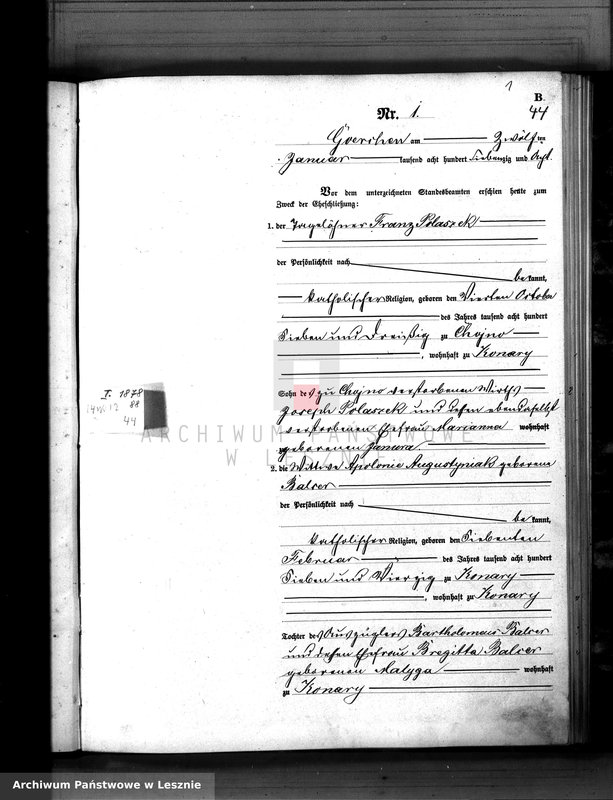 1
B.
Nr. 1.
44
Goerchen am Zwölften
Januar tausend acht hundert siebenzig und Acht.
Vor dem unterzeichneten Standesbeamten erschien heute zum
Zweck der Eheschließung:
1. der Tagelöhner Franz Polaszek
der Persönlichkeit nach
bekannt,
katholischer Religion, geboren den Vierten October
des Jahres tausend acht hundert
Sieben und Dreißig zu Chojno
, wohnhaft zu Konary
Sohn des zu Chojno verstorbenen Wirths
Joseph Polaszek und dessen ebendaselbst
verstorbenen Ehefrau Marianna wohnhaft
geborenen
2. die Wittwe Apolonia Augustyniak geborene
Balcer
der Persönlichkeit nach
bekannt,
katholischer Religion, geboren den Siebenten
Februar des Jahres tausend acht hundert
Sieben und Vierzig zu Konary
, wohnhaft zu Konary
Tochter des Auszüglers Bartholomeus Balcer
und dessen Ehefrau Bregitta Balcer
geborenen Matyga wohnhaft
zu Konary
I. 1878
88
44
ARCHIWUM PAŃSTWOWE
W LESZNIE
Archiwum Państwowe w Lesznie